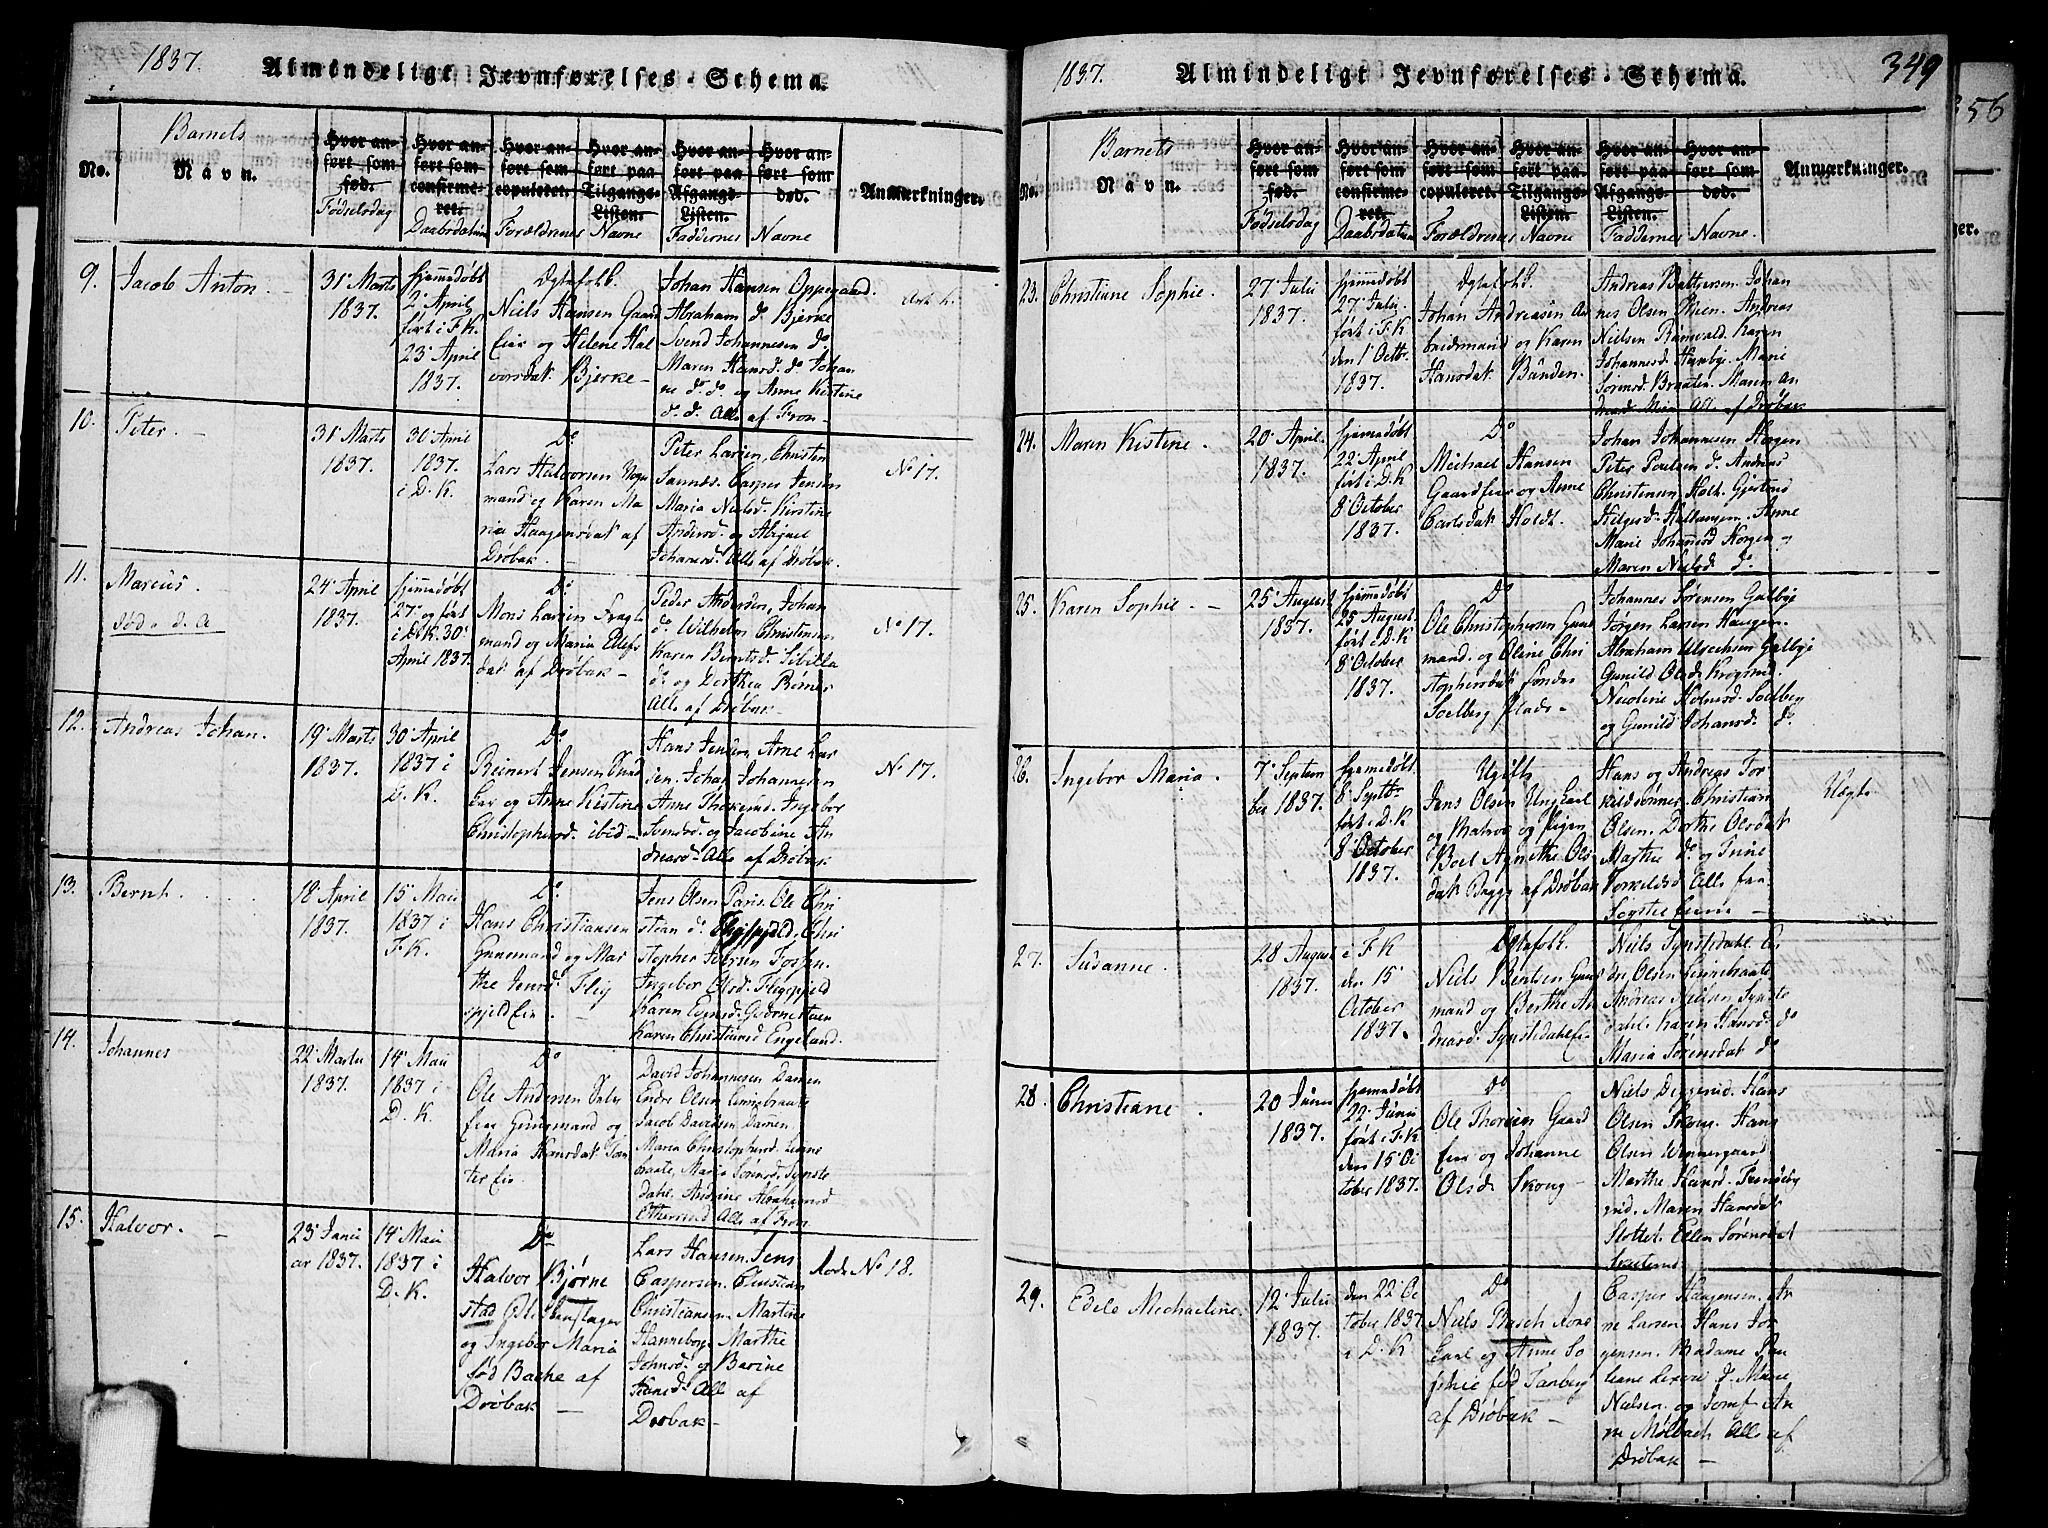 1837.
Almindeligt Jevnførelses-Schema.
Barnets
No.
Navn.
Hvor anført som fød.
Hvor anført som confirmeret.
Hvor anført som copuleret.
Hvor anført paa Tilgangs-Listen.
Hvor anført paa Afgangs-Listen.
Hvor anført som død.
Anmærkninger.
Fødselsdag
Daabsdatum
Forældrenes Navne
Faddernes Navne
9.
Jacob Anton
31' Marts
1837.
hjemmedøbt
2' April
ført i F.K.
23' April
1837.
Ægtefolk.
Niels Hansen Gaard
eier og Helene Hal
vorsdat. Bjerke
Johan Hansen Oppegaard.
Abraham do Bjerke
Svend Johannesen do
Maren Hansd. do Johan
ne do do og Anne Kirstine
do do Alle af Fron
10.
Peter.
31' Marts
1837.
30' April
1837.
i D.K.
Do
Lars Halvorsen
mand og Karen Ma
ria Haagensdat af
Drøbak
Peter Larsen, Christen
Sannes. Casper Jensen
Maria Nielsd. Kirstine
Andersd. og Abigael
Johansd. Alle af Drøbak.
No 17.
11.
Marcus.
24' April
1837.
hjemmedøbt
27' og ført
i D.K. 30'
April 1837.
Do
Mons Larsen
mand og Maria
dat af Drøbak
Peder Andersen, Johan
do Wilhelm Christensen
Karen Berntsd. Sibilla
do og Dorthea Rømer
Alle af Drøbak.
No 17.
12.
Andreas Johan.
19' Marts
1837.
30' April
1837 i
D.K.
Do
Reinert Jensen
og Anne Kistine
Christophersd. ibid
Hans Jensen, Arne Lar
sen. Johan Johannesen
Anne Ingebor
Svendsd. og Jacobine An
dreasd. Alle af Drøbak
No 17.
13.
Bernt.
18' April
1837.
15' Mai
1837 i
F.K.
Do
Hans Christiansen
Gunemand og Mar
the Jensd. Flig
spjeldeie
Jens Olsen Paris. Ole Chri
stian do Fligspjeld. Chri
stopher Iversen
Ingebor Olsd. Fligspjeld
Karen
Karen Christiansd. Engeland.
14.
Johannes
22' Marts
1837.
14' Mai
1837 i
D.K.
Do
Ole Andersen
eier Gunemand og
Maria Hansdat
David Johannesen Damen
Endre Olsen Linnebraate
Jacob Davidsen Damen
Maria Christophersd. Linne
braate, Maria Sørensd. Synste
dahl, Andrine Abrahamsd
Alle af Fron
15.
Halvor.
23' Janu
ar 1837.
14' Mai
1837 i
D.K.
Do
Halvor Bjørne
stad
og Ingebor Maria
fød Bache af
Drøbak
Lars Hansen. Jens
Caspersen. Christian
Christiansen. Martine
Hanneborg. Marthe
Johnsd. og Barine
Alle af
Drøbak
No 18.
1837.
Almindeligt Jevnførelses-Schema.
349
356
Barnets
No.
Navn.
Hvor anført som fød.
Hvor anført som confirmeret.
Hvor anført som copuleret.
Hvor anført paa Tilgangs-Listen.
Hvor anført paa Afgangs-Listen.
Hvor anført som død.
Anmærkninger.
Fødselsdag
Daabsdatum
Forældrenes Navne
Faddernes Navne.
23.
Christiane Sophie.
27' Juli
1837.
hjemmedøbt
27' Juli
ført i F.K
den 1' Octbr.
1837.
Ægtefolk.
Johan Andreasen Ar
beidsmand og Karen
Hansdat Bunden.
Andreas Johan
nes Olsen Andreas
Nielsen Karen
Johannesd. Marie
Sørensd. Braaten. Maren An
dreasd. Alle af Drøbak
24.
Maren Kistine.
20' April.
1837.
hjemmedøbt
22' April
ført i D.K
8' October
1837.
Do
Michael Hansen
Gaardeier og Anne
Carlsdat Holdt.
Johan Johannesen Horgen
Peter Poulsen do Andreas
Christensen Holt. Gjertrud
Helgesd. Hallangen. Anne
Marie Johannesd Horgen og
Maren Nielsd do
25.
Karen Sophie.
25' August
1837.
hjemmedøbt
25 August.
ført i D.K
8' October
1837.
Do
Ole Christophersen Gune
mand. og Oline Chri
stophersdat søndre
Soelberg Plads
Johannes Sørensen Galbye
Jørgen Larsen Haugen.
Abraham Galbye
Gunild Olsd. Krogsrud.
Nicoline Holmsd. Soelberg
og Gunild Johansd. do
26.
Ingebor Maria.
7' Septem
ber 1837.
hjemmedøbt.
8' Septbr.
ført i D.K
8' October
1837.
Ugifte
Jens Olsen Ungkarl
og Matros og Pigen
Boel Agnethe Ols
dat Bagge af Drøbak
Hans og Andreas Tor
kildsønner. Christian
Olsen. Dorthe Olsdat
Marthe do og Trine
Torkeldsd. Alle fra
Uægte
27.
Susanne.
28 August
1837.
i F.K
den 15'
October
1837.
Ægtefolk.
Niels Berntsen Gune
mand og Berthe An
dreasd. Synstedahleie
Niels Synstedahl. En
dre Olsen Linnebraate
Andreas Nielsen Synste
dahl. Karen Hansd. do
Maria Sørensdat do
28.
Christiane
20 Juni
1837.
hjemmedøbt
22' Juni
ført i F.K
den 15' Oc
tober 1837.
Do
Ole Thorsen Gaard
eier og Johanne
Olsd. Skoug
Niels Digerud. Hans
Olsen Skoug. Hans
Olsen Winnergaard
Marthe Hansd.
Maren Hansdat
Slottet. Ellen Sørensdat
29.
Edele Michaeline.
12' Juli
1837.
den 22' Oc
tober 1837
i D.K
Do
Niels Busch
Karl og Anne So
phie fød Tanberg
af Drøbak
Casper Haagensen. Ar
ne Larsen. Hans Jør
gensen. Madame Pau
line Larsen do Marie
Nielsen. og Jomf. An
ne Mølbach Alle af
Drøbak